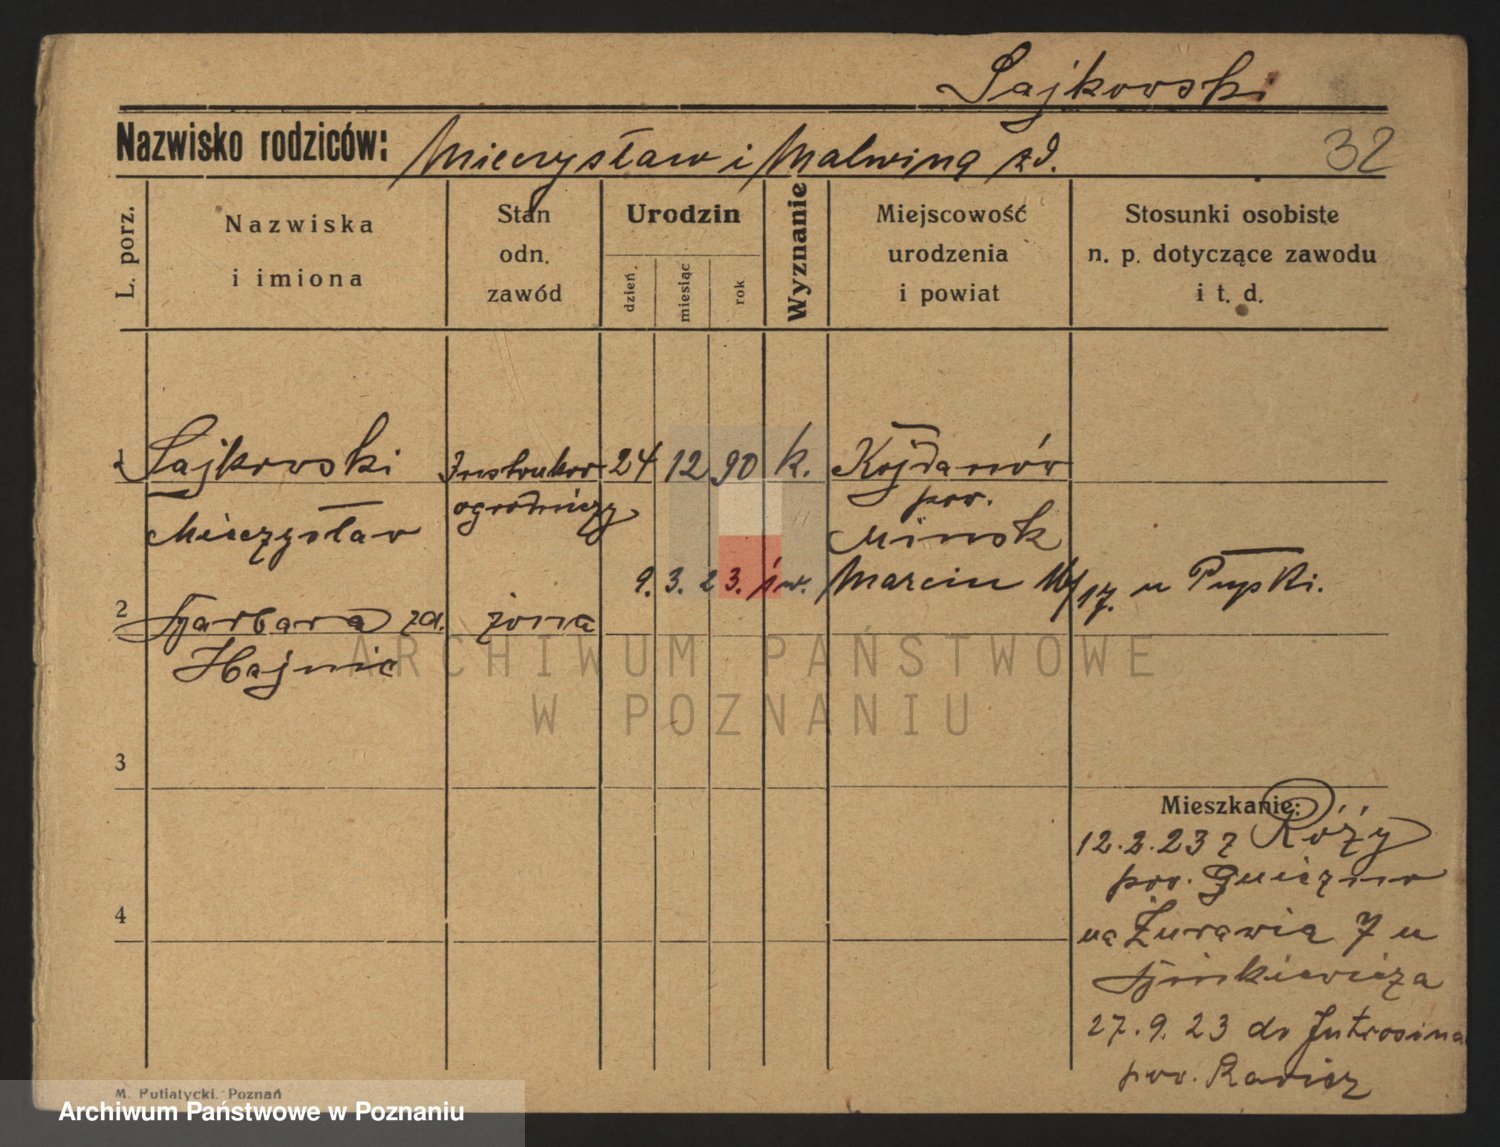 Sajkowski
Nazwisko rodziców: Mieczysław i Malwina zd.
32
L. porz.
Nazwiska
i imiona
Stan
odn.
zawód
Urodzin
dzień.
miesiąc
rok
Wyznanie
Miejscowość
urodzenia
i powiat
Stosunki osobiste
n. p. dotyczące zawodu
i t. d.
1 Sajkowski Instruktor 24 12 90 k. Kojdanów
ogrodniczy pow.
Mieczysław Mińsk
9. 3. 23. św. Marcin 16/17. u Pupski.
2 Barbara zd. żona
Hajnic
3
Mieszkanie:
12.2.23 z Róży
pow. Gniezno
4
na Żurawią 7 u
27.9.23 do Jutrosina
pow. Rawicz
M. Putiatycki. Poznań
Archiwum Państwowe w Poznaniu
ARCHIWUM PAŃSTWOWE
W POZNANIU